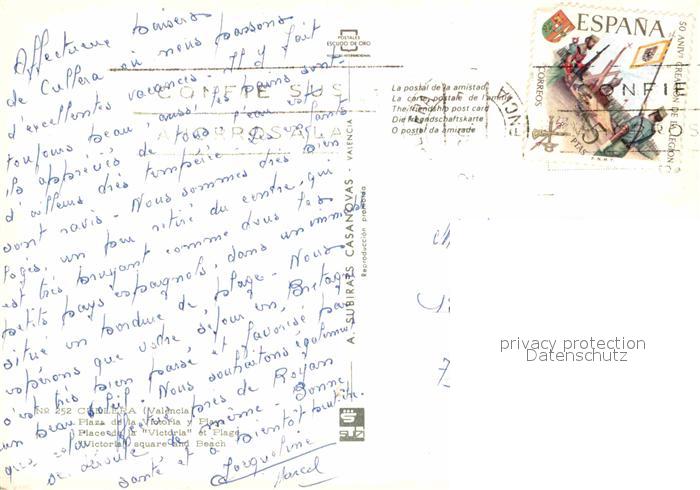 Affectueux baisers
de Cullera où nous passons
d'excellentes vacances. Il y fait
toujours beau aussi les bains sont-
ils appréciés de tous. L'eau est
d'ailleurs très tempérée. Les enfants
sont ravis. Nous sommes très bien
logés, un peu retiré du centre, qui
est très bruyant comme dans les
petits pays espagnols, dans un immeuble
situé en bordure de plage. Nous
espérons que votre séjour en Bretagne
s'est très bien passé et favorisé par
un beau soleil. Nous souhaitons également
que celui près de Royan
se déroule de même. Bonne
santé et à bientôt peut-être.
Jacqueline
Marcel
Nº 252 CULLERA (Valencia)
Plaza de la Victoria y Playa
Place de la "Victoria" et Plage
Victoria square and Beach
POSTALES
ESCUDO DE ORO
A. SUBIRATS CASANOVAS - VALENCIA
Reproducción prohibida
La postal de la amistad
La carte postale de l'amitié
The friendship post card
Die Freundschaftskarte
O postal da amizade
CONFIE SUS
AHORROS A LA
ESPAÑA
CORREOS
50 ANIV. CREACION DE LA LEGION
5 PTAS
F.N.M.T.
CONFIE
privacy protection
Datenschutz